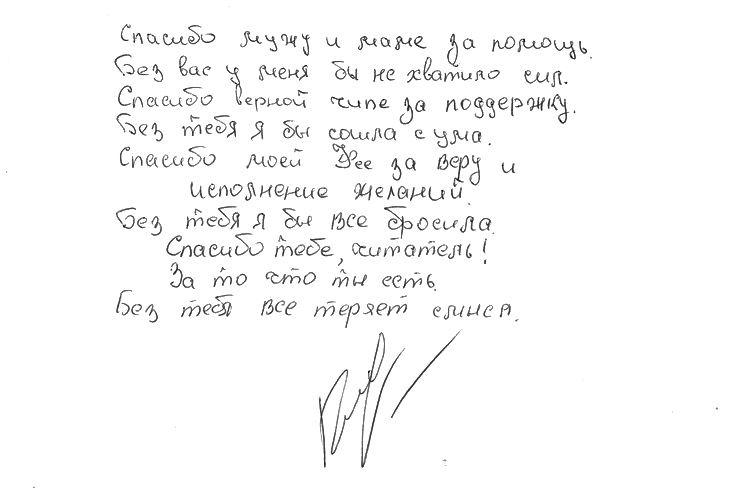 Спасибо мужу и маме за помощь.
Без вас у меня бы не хватило сил.
Спасибо верной чипе за поддержку.
Без тебя я бы сошла с ума.
Спасибо моей Фее за веру и
исполнение желаний.
Без тебя я бы все бросила.
Спасибо тебе, читатель!
За то что ты есть.
Без тебя все теряет смысл.